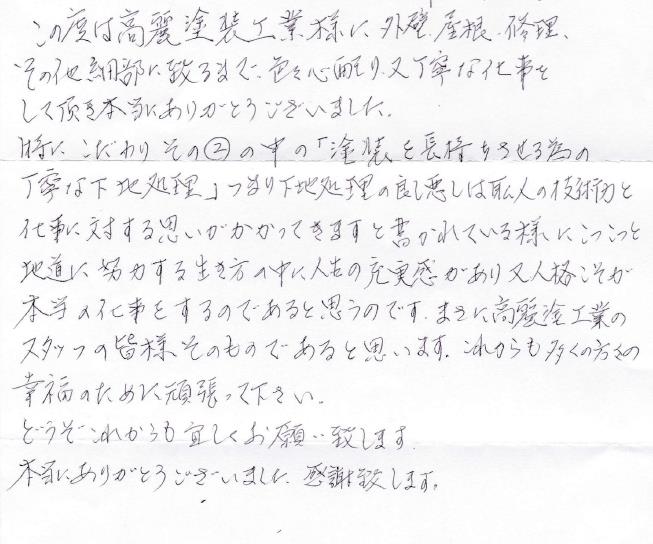 この度は高麗塗装工業様に外壁、屋根、修理、
その他細部に致るまで、色々心配り、又丁寧な仕事を
して頂き本当にありがとうございました。
特にこだわりその②の中の「塗装を長持ちさせる為の
丁寧な下地処理」つまり下地処理の良し悪しは職人の技術力と
仕事に対する思いがかかってきますと書かれている様にこつこつと
地道に努力する生き方の中に人生の充実感があり又人格こそが
本当の仕事をするのであると思うのです。まさに高麗塗工業の
スタッフの皆様そのものであると思います。これからも多くの方々の
幸福のために頑張って下さい。
どうぞこれからも宜しくお願い致します。
本当にありがとうございました 感謝致します。